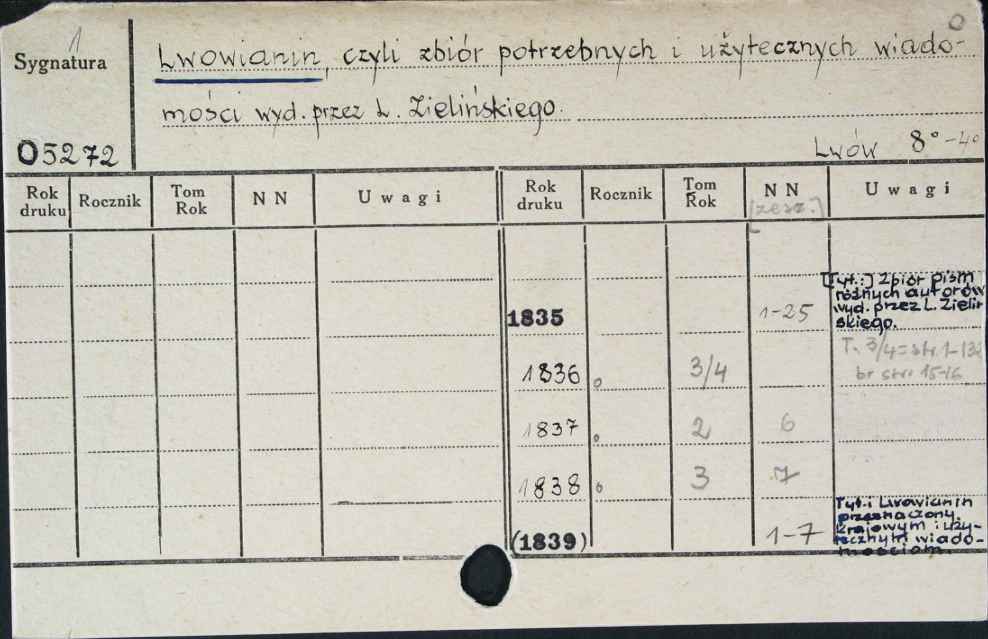 1
O
Sygnatura
Lwowianin, czyli zbiór potrzebnych i użytecznych wiado-
mości wyd. przez L. Zielińskiego.
O5272
Lwów 8° - 4°
Rok druku Rocznik Tom Rok N N Uwagi Rok druku Rocznik Tom Rok N N [zesz.] Uwagi
[Tyt.:] Zbiór pism
różnych autorów
wyd. przez L. Zieliń
skiego.
1835 1-25
T. 3/4 = str. 1-132
br str. 15-16
1836 3/4
1837 2 6
1838 3 7
Tyt.: Lwowianin
przeznaczony
krajowym i uży-
tecznym wiado-
mościom.
(1839) 1-7